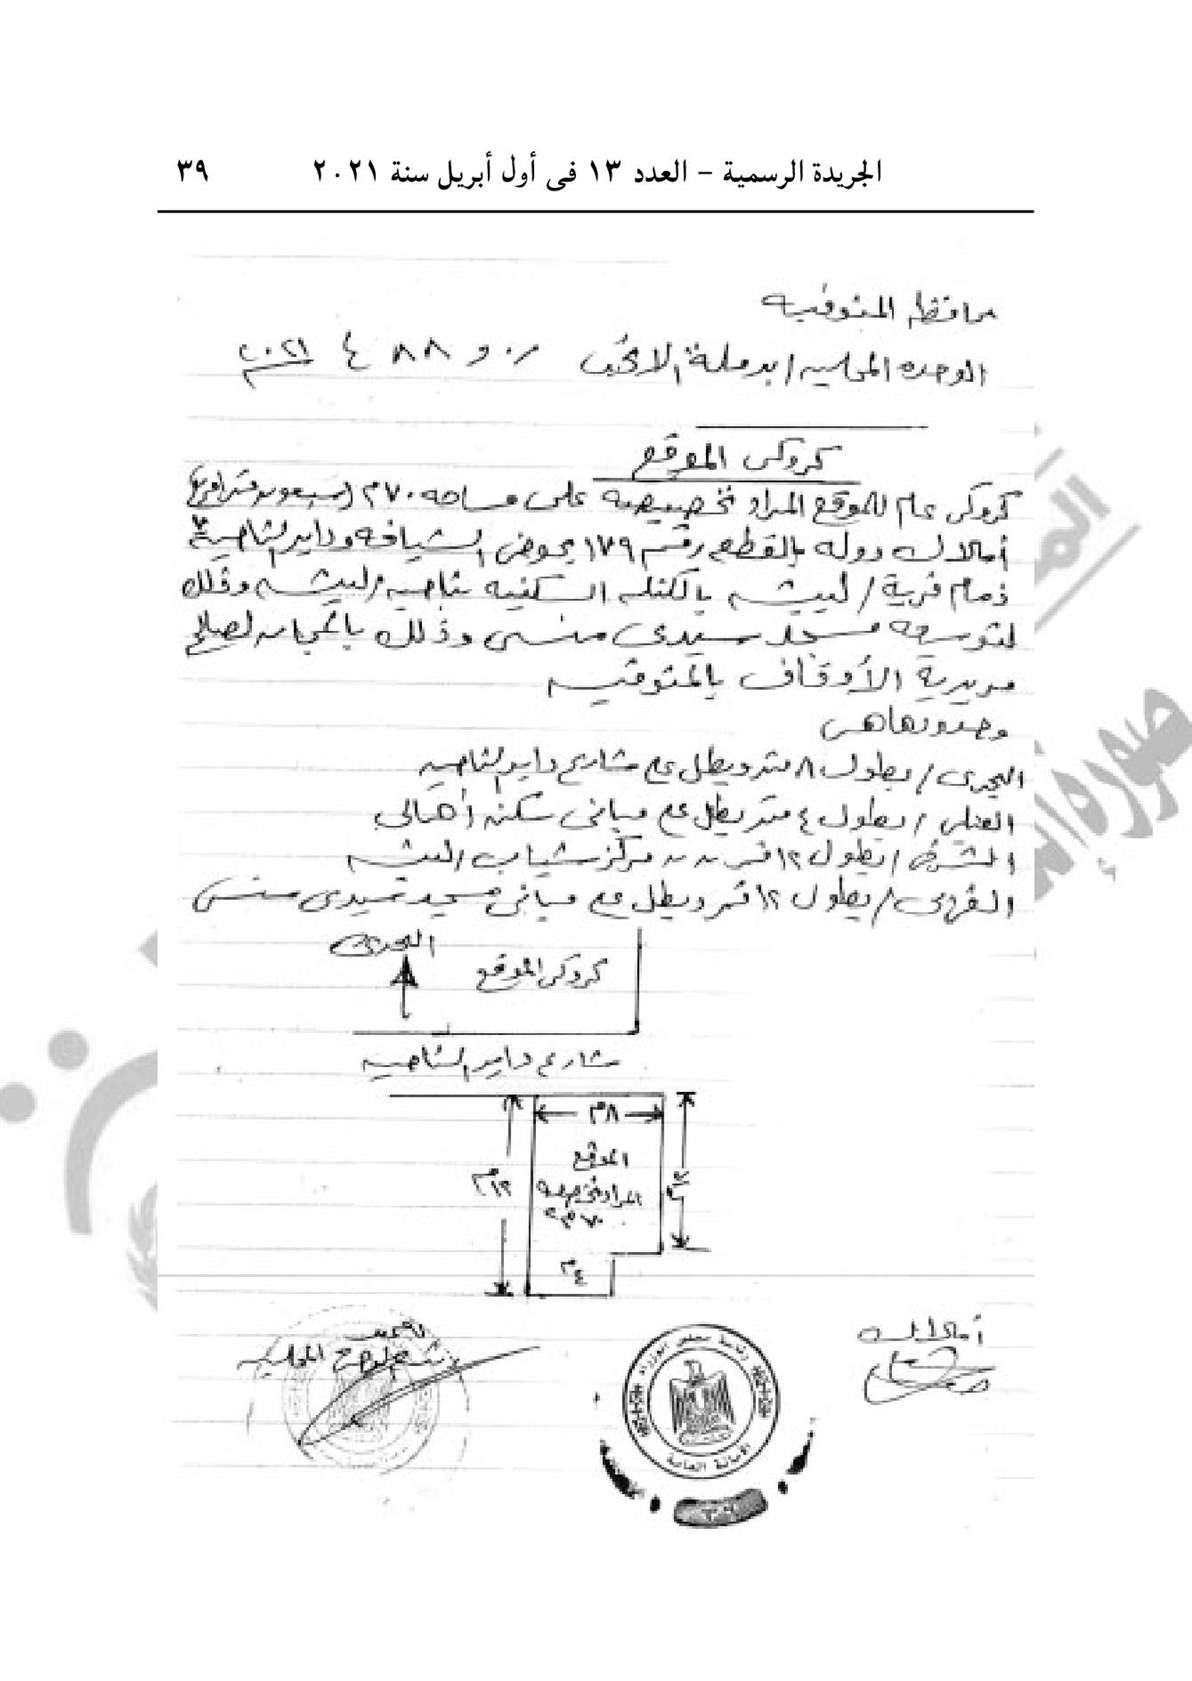 الجريدة الرسمية – العدد ١٣ فى أول أبريل سنة ٢٠٢١ ٣٩
محافظة المنوفية
الوحدة المحلية / بدملة ٢٠٢١
كروكى الموقع
كروكى عام للموقع المراد تخصيصه على مساحة ٧٠م٢ (سبعون متر مربع)
أملاك دولة بالقطعة رقم ١٧٩ بحوض السياقه وداير الناحية
زمام قرية / لبيشة بالكتلة السكنية بناحية / لبيشة وذلك
لتوسعة مسجد سيدى منسى وذلك بالمجان لصالح
مديرية الأوقاف بالمنوفية
وحدودها هى
البحرى / بطول ٨ متر ويطل على شارع داير الناحية
القبلى / بطول ٤ متر يطل على مبانى سكنه أهالى
الشرقى / بطول ١٢ متر مركز شباب لبيشة
الغربى / بطول ١٢ متر ويطل على مبانى مسجد سيدى منسى
البحرى
كروكى الموقع
شارع داير الناحية
٨م
الموقع
المراد تخصيصه
٧٠م٢
١٢م
٤م
أملاك
المحلية
رئاسة مجلس الوزراء
الأمانة العامة